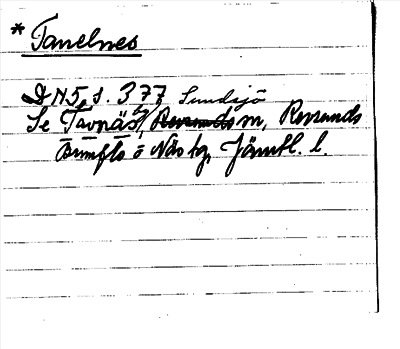 * Tanelnes
DN5, s. 377 Sundsjö
Se Tavnäs, m, Revsunds
Brunflo o Näs tg, Jämtl. l.